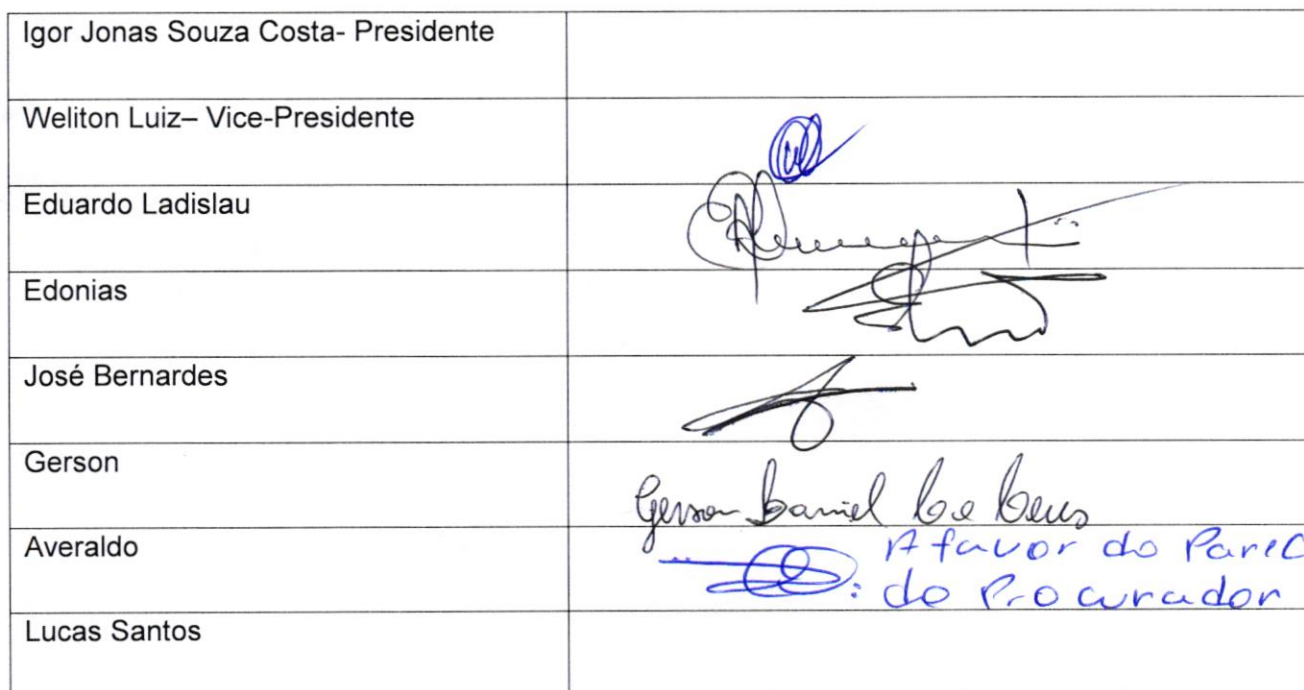 Igor Jonas Souza Costa- Presidente
Weliton Luiz– Vice-Presidente
Eduardo Ladislau
Edonias
José Bernardes
Gerson
Gerson Daniel de Deus
Averaldo
A favor do Parec
do Procurador
Lucas Santos